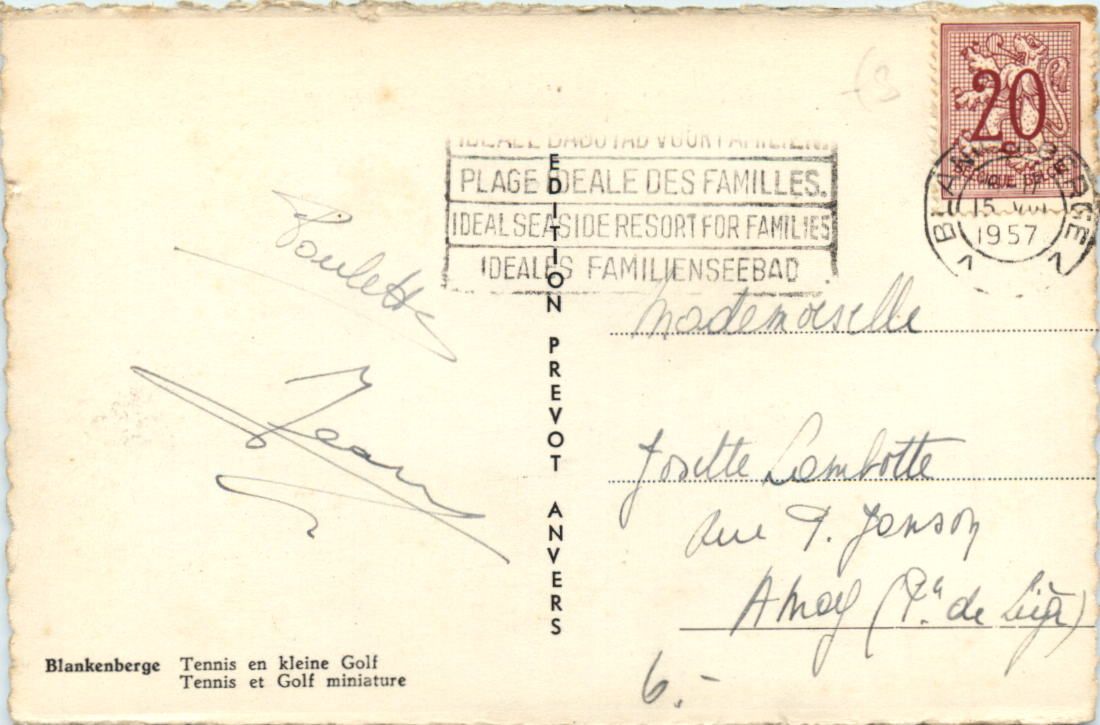 20
BELGIQUE BELGIE
BLANKENBERGE
15 VIII
1957
IDEALE BADSTAD VOOR FAMILIEN.
PLAGE IDEALE DES FAMILLES.
IDEAL SEASIDE RESORT FOR FAMILIES
IDEALES FAMILIENSEEBAD
Paulette
Jean
EDITION PREVOT ANVERS
Mademoiselle
Josette Lambotte
rue P. Janson
Amay (Pce de Liège)
6.-
Blankenberge Tennis en kleine Golf
Tennis et Golf miniature